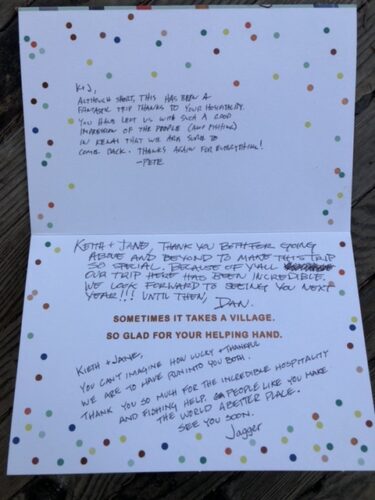 K+J,
ALTHOUGH SHORT, THIS HAS BEEN A
FANTASTIC TRIP THANKS TO YOUR HOSPITALITY.
YOU HAVE LEFT US WITH SUCH A GOOD
IMPRESSION OF THE PEOPLE (AND FISHING)
IN KENAI THAT WE ARE SURE TO
COME BACK. THANKS AGAIN FOR EVERYTHING!
-PETE
KEITH + JANE, THANK YOU BOTH FOR GOING
ABOVE AND BEYOND TO MAKE THIS TRIP
SO SPECIAL. BECAUSE OF Y'ALL
OUR TRIP HERE HAS BEEN INCREDIBLE.
WE LOOK FORWARD TO SEEING YOU NEXT
YEAR!!! UNTIL THEN, DAN.
SOMETIMES IT TAKES A VILLAGE.
SO GLAD FOR YOUR HELPING HAND.
KIETH + JANE,
YOU CAN'T IMAGINE HOW LUCKY + THANKFUL
WE ARE TO HAVE RUN INTO YOU BOTH.
THANK YOU SO MUCH FOR THE INCREDIBLE HOSPITALITY
AND FISHING HELP. PEOPLE LIKE YOU MAKE
THE WORLD A BETTER PLACE.
SEE YOU SOON.
Jagger